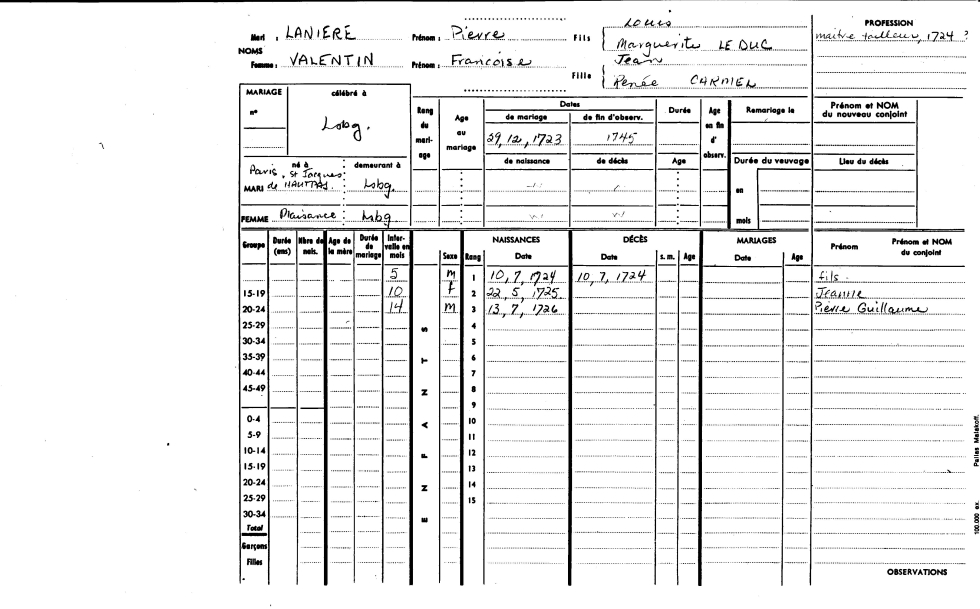 Mari : LANIERE Prénom : Pierre Fils { Louis
Marguerite LE DUC
NOMS
Femme : VALENTIN Prénom : Francoise Fille { Jean
Renée CARMIEL
PROFESSION
maitre tailleur, 1724 ?
MARIAGE célébré à
n° Lsbg.
né à demeurant à
MARI Paris, St Jacques de HAUTPAS. Lsbg.
FEMME Plaisance : Lsbg
Rang du mariage
Age au mariage
Dates
de mariage de fin d'observ.
29, 12, 1723 1745
de naissance de décès
Durée
Age
Age en fin d' observ.
Remariage le
Durée du veuvage
en
mois
Prénom et NOM du nouveau conjoint
Lieu du décès
Groupe Durée (ans) Nbre de nais. Age de la mère Durée de mariage Intervalle en mois Sexe Rang NAISSANCES Date DÉCÈS Date s. m. Age MARIAGES Date Age Prénom Prénom et NOM du conjoint
5 m 1 10, 7, 1724 10, 7, 1724 fils
15-19 10 f 2 22, 5, 1725 Jeanne
20-24 14 m 3 13, 7, 1726 Pierre Guillaume
25-29 4
30-34 5
35-39 6
40-44 7
45-49 8
9
0-4 10
5-9 11
10-14 12
15-19 13
20-24 14
25-29 15
30-34
Total
Garçons
Filles
ENFANTS
OBSERVATIONS
100.000 ex. Palles Malakoff.